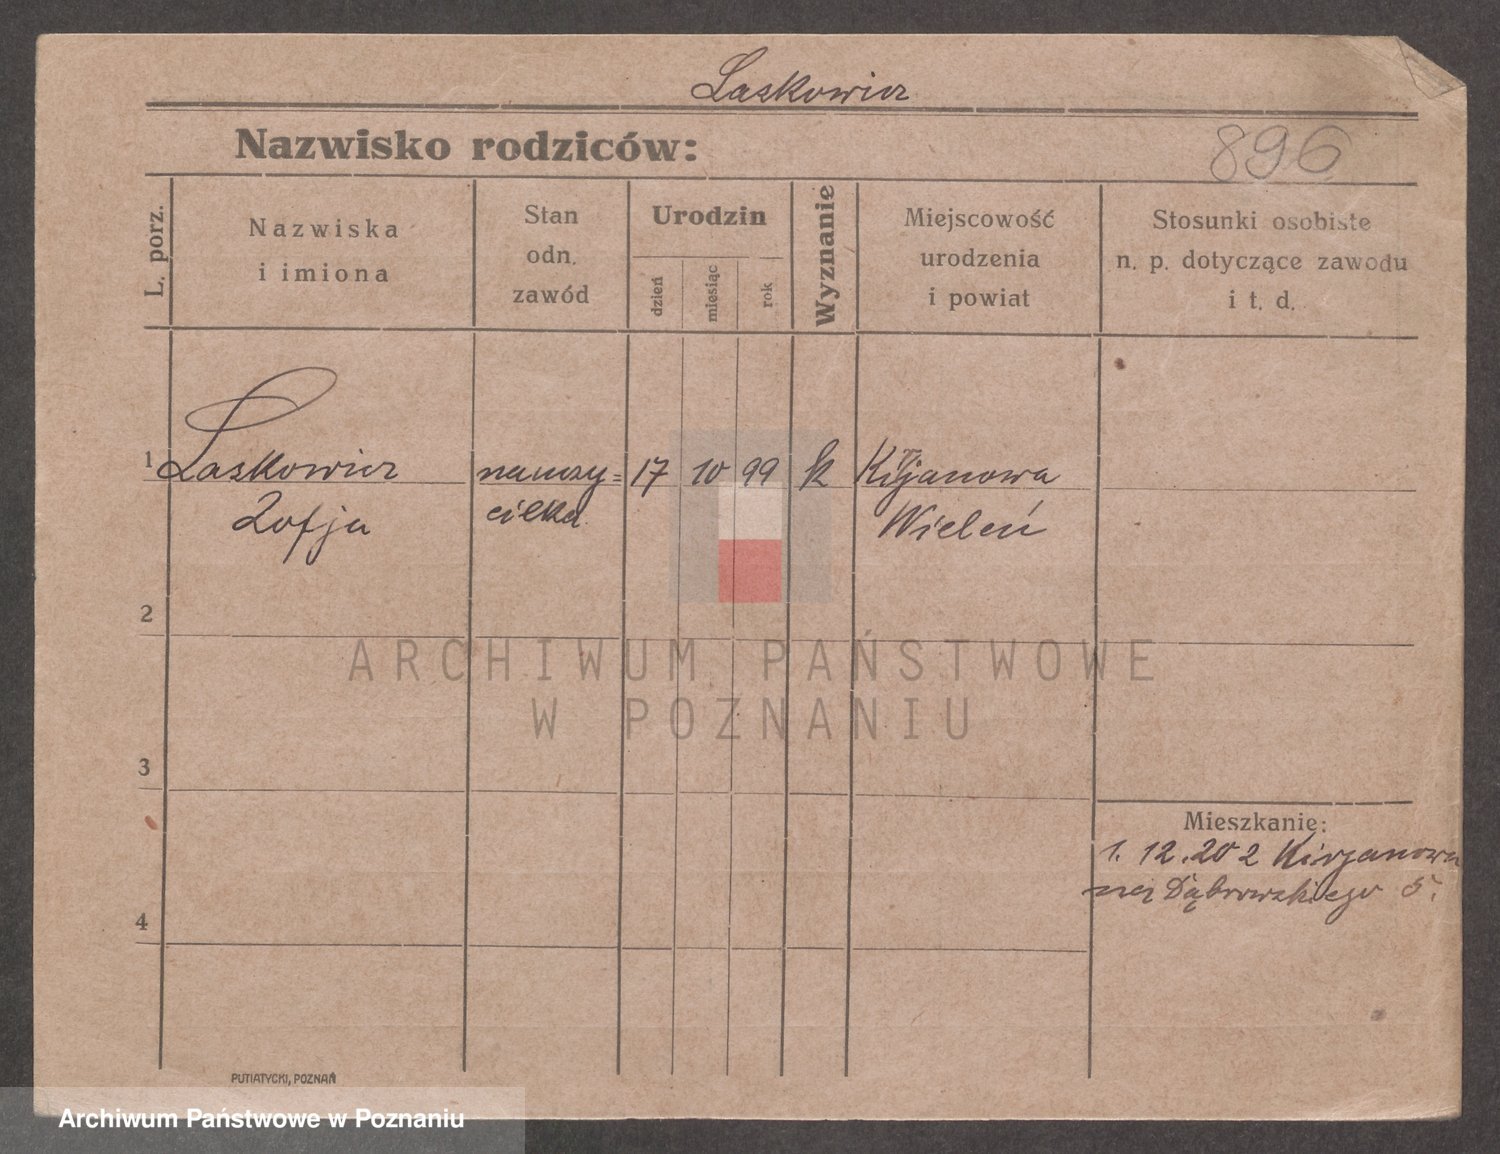 Laskowicz
Nazwisko rodziców:
896
L. porz.
Nazwiska
i imiona
Stan
odn.
zawód
Urodzin
dzień
miesiąc
rok
Wyznanie
Miejscowość
urodzenia
i powiat
Stosunki osobiste
n. p. dotyczące zawodu
i t. d.
1 Laskowicz nauczy= 17 10 99 k Kijanowa
Zofja cielka Wieleń
2
ARCHIWUM PAŃSTWOWE
W POZNANIU
3
Mieszkanie:
1. 12. 20 z
Dąbrowskiego 5.
4
PUTIATYCKI, POZNAŃ
Archiwum Państwowe w Poznaniu